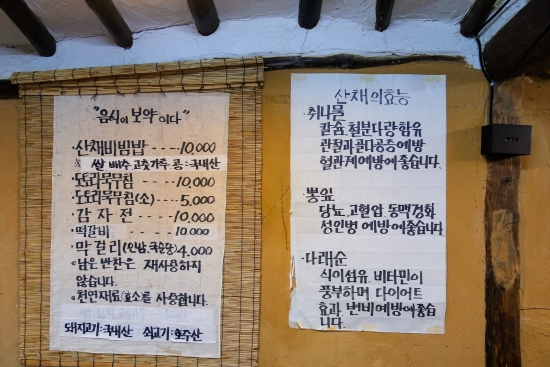 "음식이 보약이다"
·산채비빔밥 — 10,000
※ 쌀 배추 고춧가루 콩:국내산
·도토리묵무침 — 10,000
·도토리묵무침(소) — 5,000
·감자전 — 10,000
·떡갈비 — 10,000
·막걸리 4,000
·남은 반찬은 재사용하지
않습니다.
·천연재료 효소를 사용합니다.
돼지고기:국내산 쇠고기:호주산
산채의효능
·취나물
칼슘, 철분다량함유
관절과골다공증예방
혈관계예방에좋습니다.
·뽕잎
당뇨, 고혈압 동맥경화
성인병 예방에좋습니다.
·다래순
식이섬유 비타민이
풍부하며 다이어트
효과 변비예방에좋습니다.